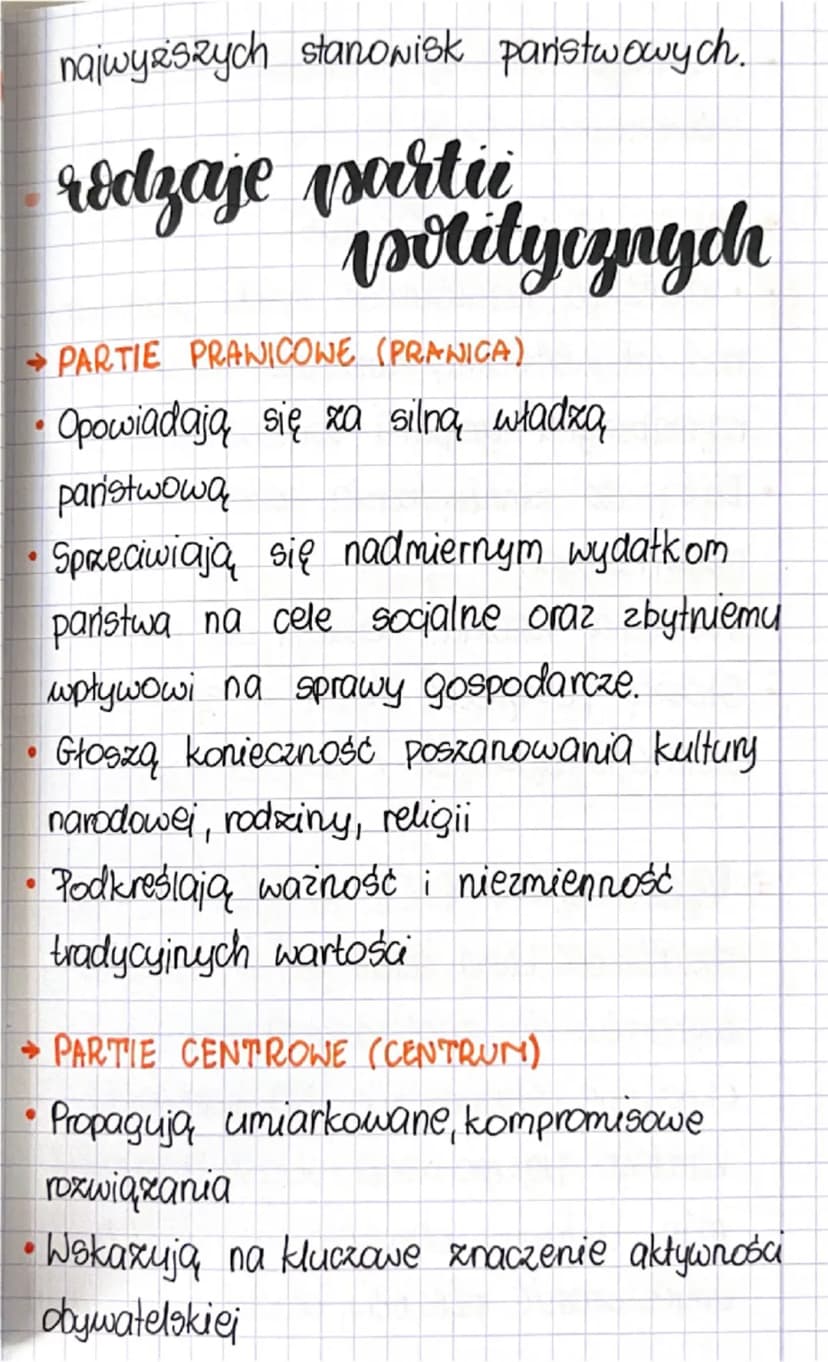 najwyższych stanowisk państwowych.
rodzaje partii
politycznych
→ PARTIE PRAWICOWE (PRAWICA)
• Opowiadają się za silną władzą
państwową
• Sprzeciwiają się nadmiernym wydatkom
państwa na cele socjalne oraz zbytniemu
wpływowi na sprawy gospodarcze.
• Głoszą konieczność poszanowania kultury
narodowej, rodziny, religii
• Podkreślają ważność i niezmienność
tradycyjnych wartości
→ PARTIE CENTROWE (CENTRUM)
• Propagują umiarkowane, kompromisowe
rozwiązania
• Wskazują na kluczowe znaczenie aktywności
obywatelskiej